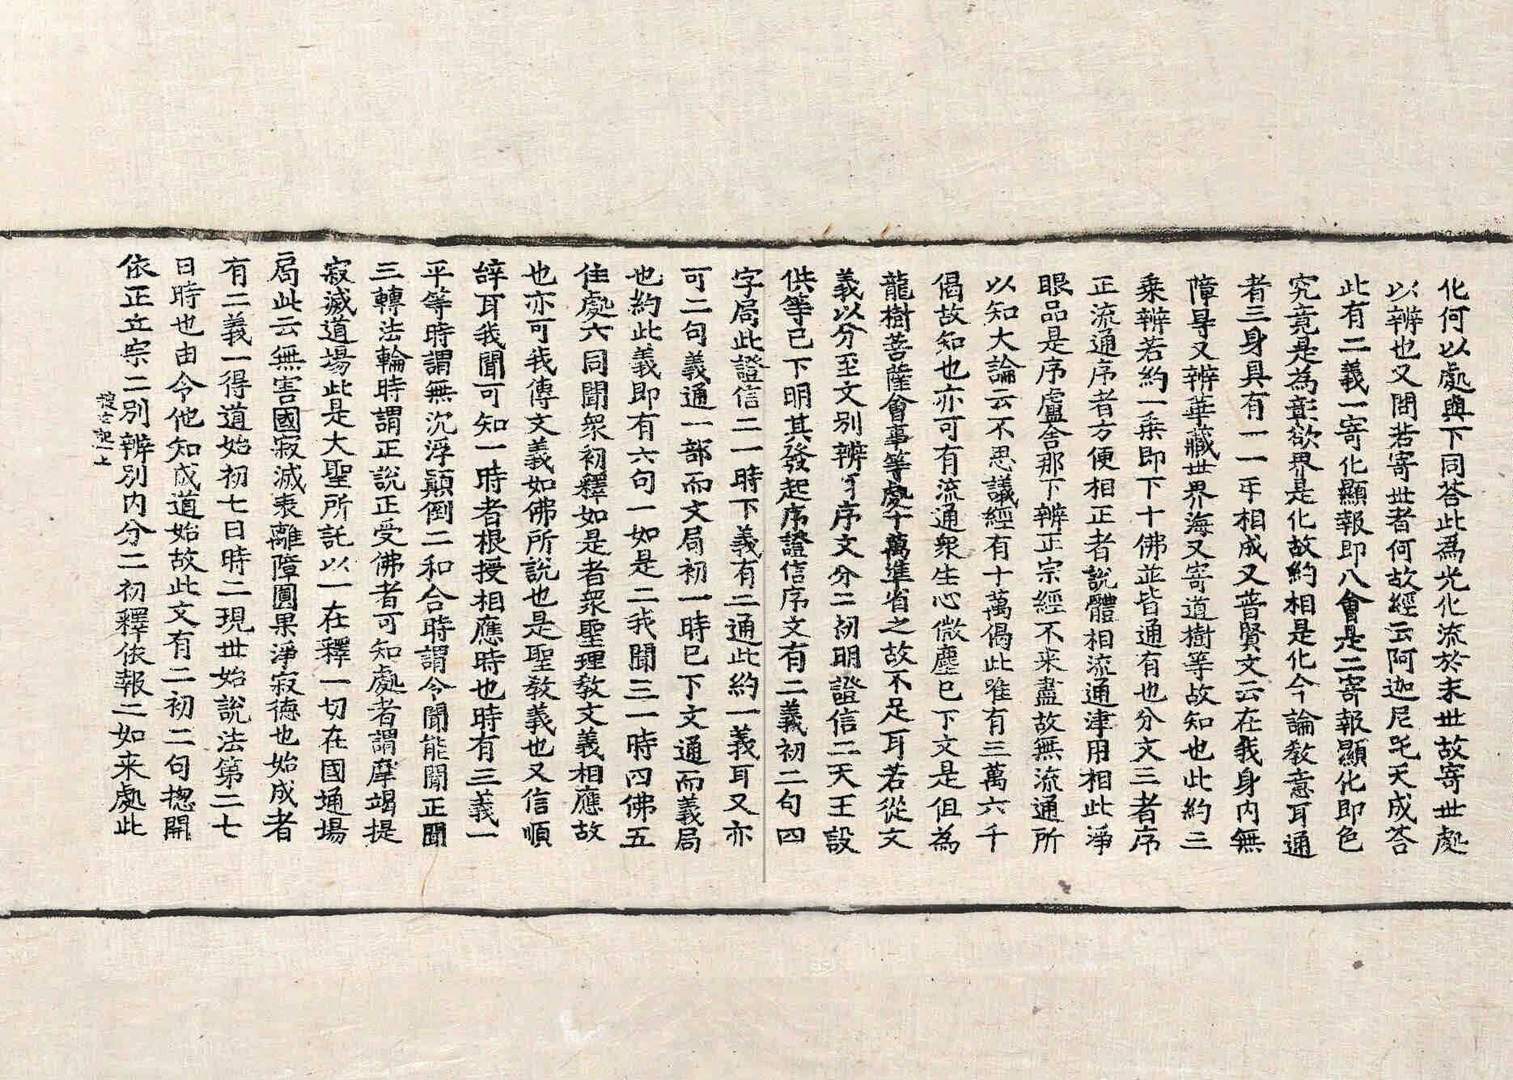 化何以處與下同答此為光化流於末世故寄世處
以辨也又問若寄世者何故經云阿迦尼吒天成答
此有二義一寄化顯報即八會是二寄報顯化即色
究竟是為彰欲界是化故約相是化今論教意耳通
者三身具有一一乎相成又普賢文云在我身内無
障㝵又辨華藏世界海又寄道樹等故知也此約三
乘辨若約一乘即下十佛並皆通有也分文三者序
正流通序者方便相正者說體相流通津用相此淨
眼品是序盧舍那下辨正宗經不来盡故無流通所
以知大論云不思議經有十萬偈此唯有三萬六千
偈故知也亦可有流通衆生心微塵已下文是但為
龍樹菩薩會事等處千萬準省之故不足耳若從文
義以分至文别辨序文分二初明證信二天王設
供等已下明其發起序證信序文有二義初二句四
字局此證信二一時下義有二通此約一義耳又亦
可二句義通一部而文局初一時已下文通而義局
也約此義即有六句一如是二我聞三一時四佛五
住處六同聞衆初釋如是者衆聖理教文義相應故
也亦可我傳文義如佛所說也是聖教義也又信順
辞耳我聞可知一時者根授相應時也時有三義一
平等時謂無沉浮顛倒二和合時謂令聞能聞正聞
三轉法輪時謂正說正受佛者可知處者謂摩竭提
寂滅道場此是大聖所託以一在釋一切在國通場
局此云無害國寂滅表離障圓果淨寂德也始成者
有二義一得道始初七日時二現世始說法第二七
日時也由令他知成道始故此文有二初二句揔開
依正立宗二别辨别内分二初釋依報二如来處此
搜玄記上